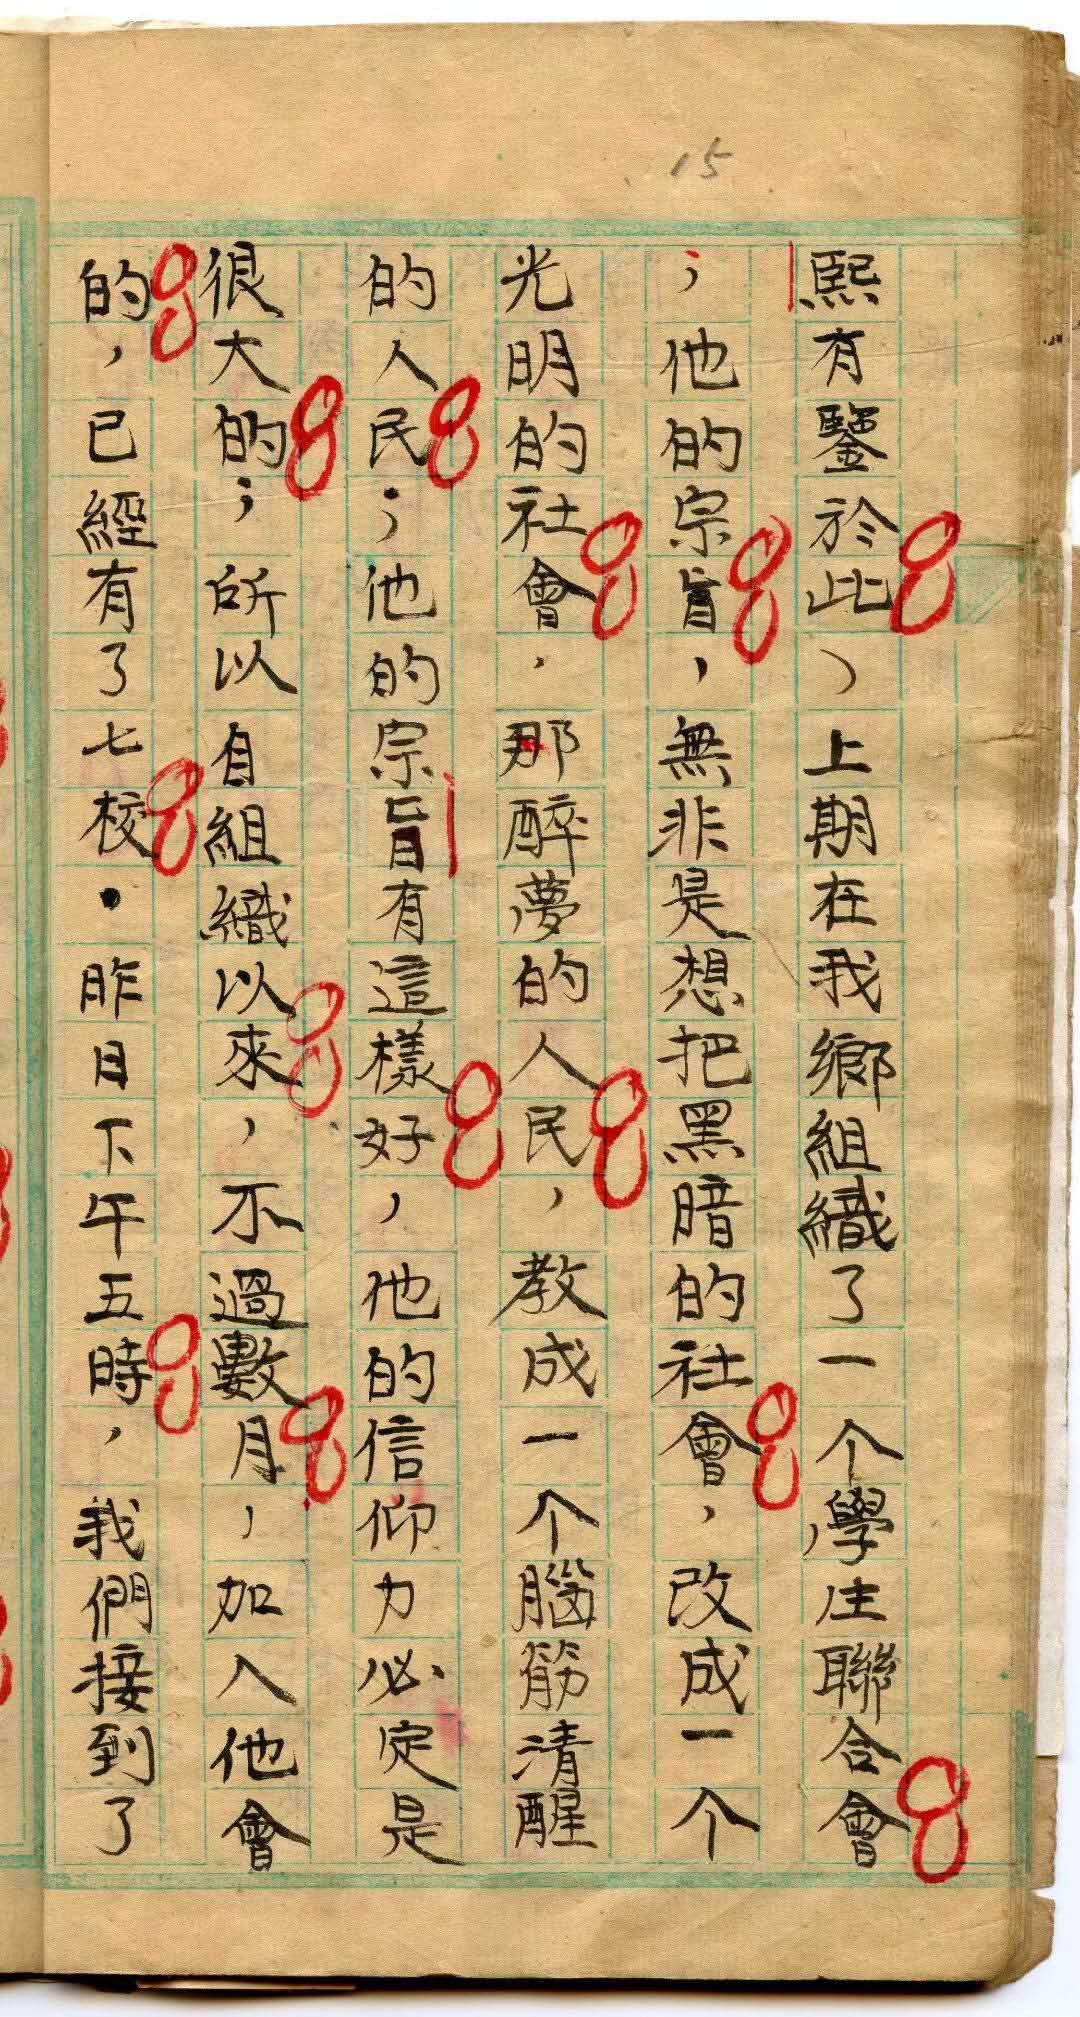 15
熙有鑒於此，上期在我鄉組織了一个學生聯合會
；他的宗旨，無非是想把黑暗的社會，改成一个
光明的社會，那醉夢的人民，教成一个腦筋清醒
的人民；他的宗旨有這樣好，他的信仰力必定是
很大的；所以自組織以來，不過數月，加入他會
的，已經有了七校．昨日下午五時，我們接到了